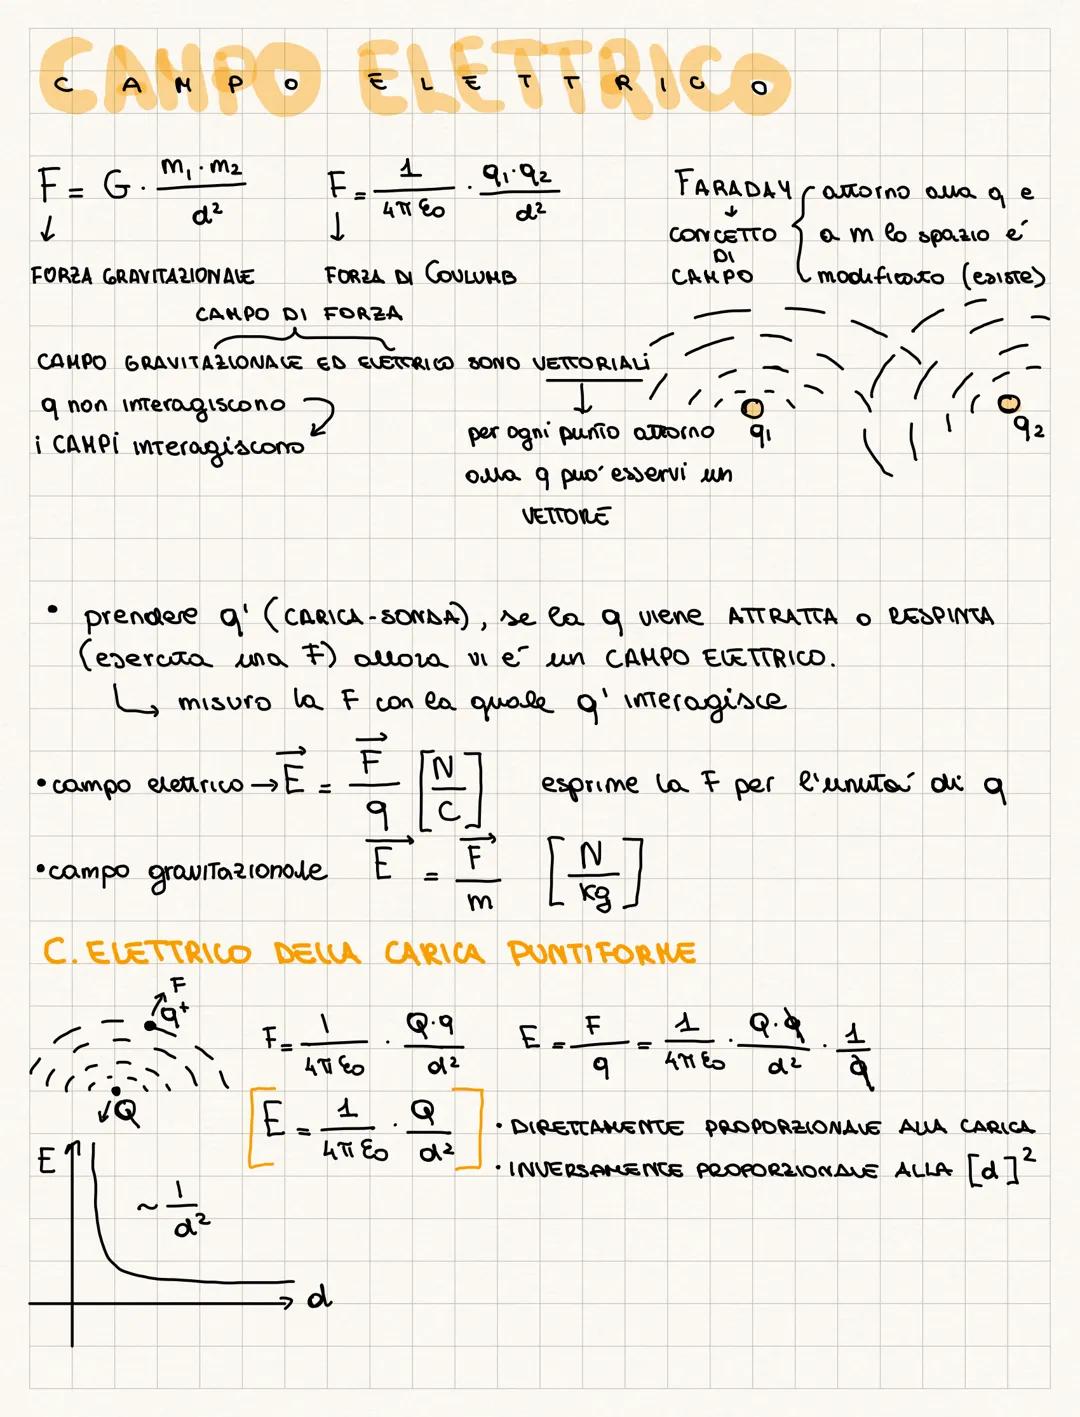 CAMPO ELETTRICO
C A M P O E L E T T R I C O
F = G · m₁·m₂ / d²
↓
FORZA GRAVITAZIONALE
F = 1 / 4π ε₀ · q₁·q₂ / d²
↓
FORZA DI COULUMB
FARADAY
↓
CONCETTO
DI
CAMPO
attorno alla q e
a m lo spazio é
modificato (esiste)
CAMPO DI FORZA
CAMPO GRAVITAZIONALE ED ELETTRICO SONO VETTORIALI
q non interagiscono
i CAMPI interagiscono
↓
per ogni punto attorno
alla q puo' esservi un
VETTORE
q₁
q₂
• prendere q' (CARICA-SONDA), se la q viene ATTRATTA o RESPINTA
(esercita una F) allora vi é un CAMPO ELETTRICO.
↳ misuro la F con la quale q' interagisce
• campo elettrico → E⃗ = F⃗ / q [N/C] esprime la F per l'unutá di q
• campo gravitazionale E⃗ = F⃗ / m [N/kg]
C. ELETTRICO DELLA CARICA PUNTIFORME
F
q⁺
Q
F = 1 / 4π ε₀ · Q·q / d²
E = F / q = 1 / 4π ε₀ · Q·q / d² · 1 / q
[E = 1 / 4π ε₀ · Q / d²]
• DIRETTAMENTE PROPORZIONALE ALLA CARICA
• INVERSAMENTE PROPORZIONALE ALLA [d]²
E
~ 1 / d²
d